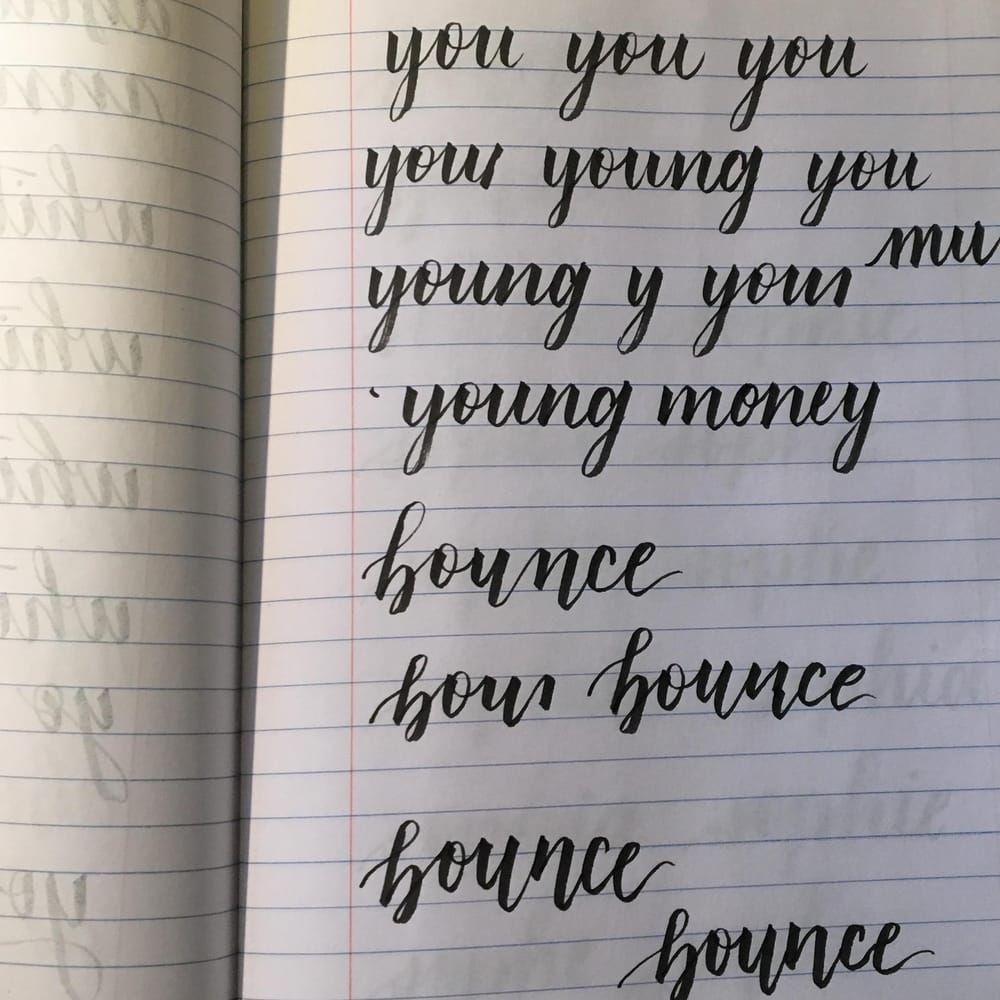 you you you
your young you
young y your mu
young money
bounce
bour bounce
bounce
bounce